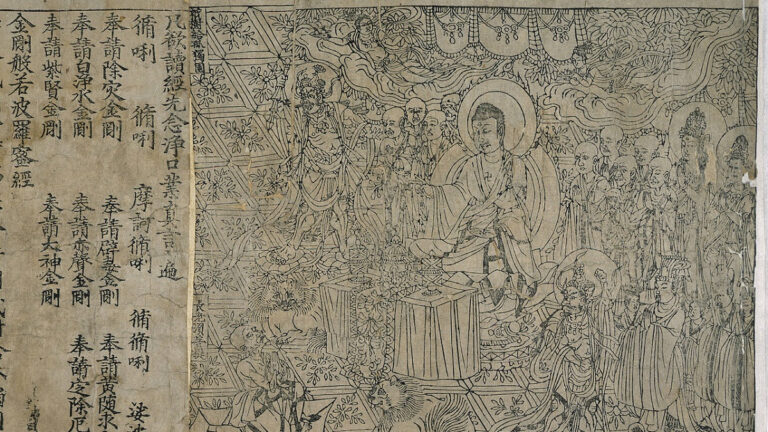 祇樹給孤獨園
長老須菩提
凡欲讀經先念淨口業真言一遍
脩唎 脩唎 摩訶脩唎 脩脩唎 娑
奉請除灾金剛 奉請辟毒金剛 奉請黃随求
奉請白淨水金剛 奉請赤聲金剛 奉請定除厄
奉請紫賢金剛 奉請大神金剛
金剛般若波羅蜜經